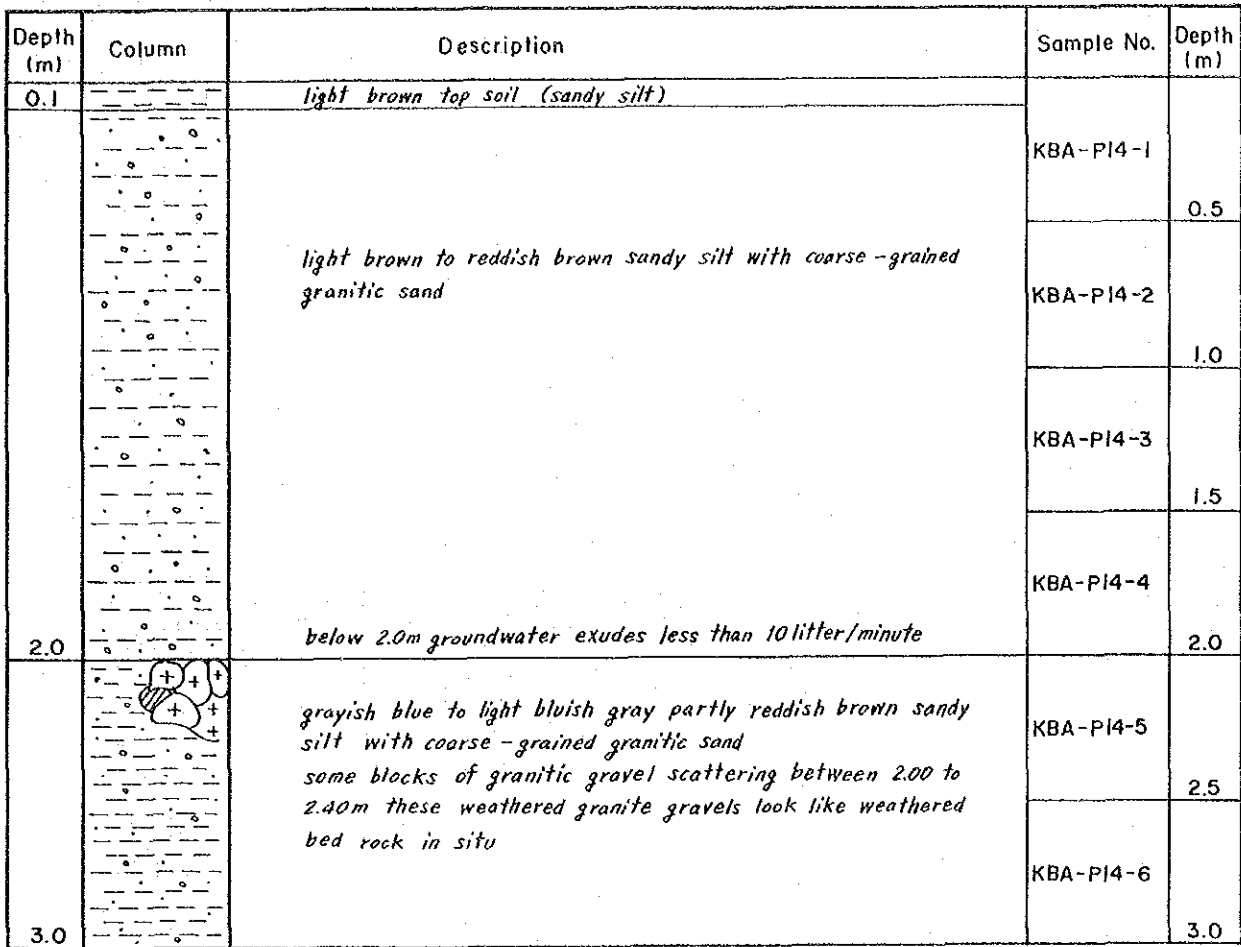 Depth (m) Column Description Sample No. Depth (m)
0.1 light brown top soil (sandy silt)
KBA-P14-1
0.5
light brown to reddish brown sandy silt with coarse-grained
granitic sand
KBA-P14-2
1.0
KBA-P14-3
1.5
KBA-P14-4
below 2.0m groundwater exudes less than 10 litter/minute
2.0 2.0
grayish blue to light bluish gray partly reddish brown sandy
silt with coarse-grained granitic sand
KBA-P14-5
some blocks of granitic gravel scattering between 2.00 to
2.40m these weathered granite gravels look like weathered
bed rock in situ
2.5
KBA-P14-6
3.0 3.0